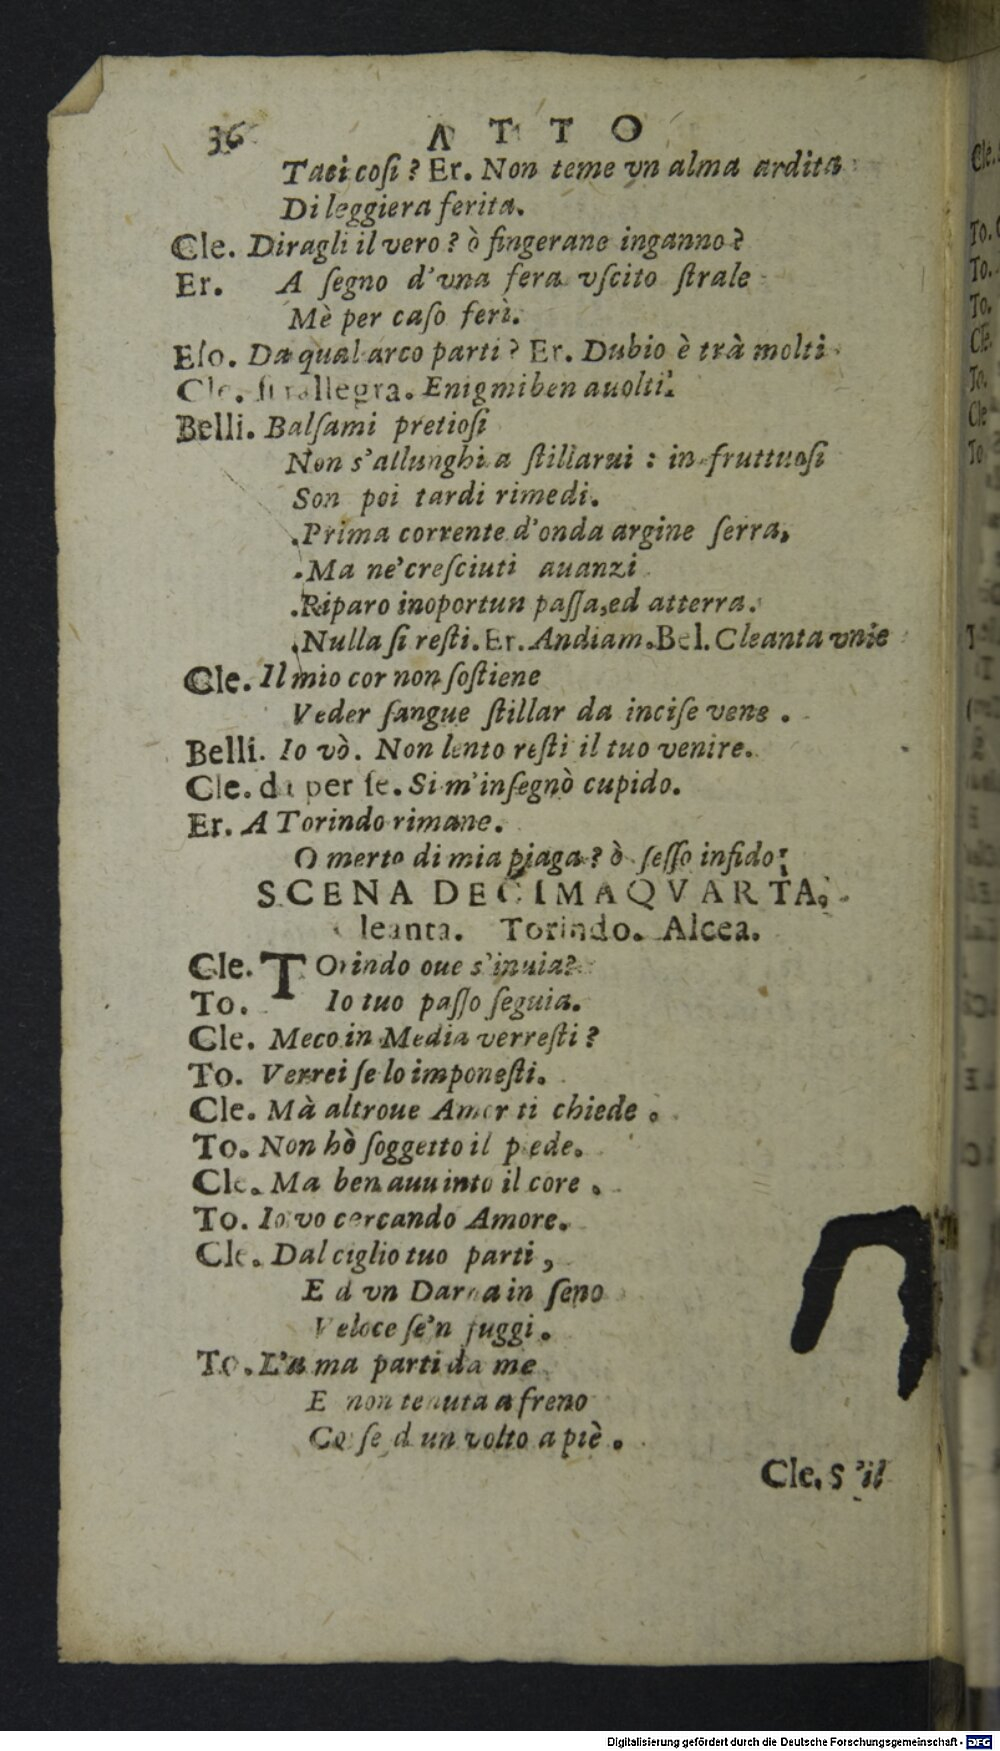 36 ATTO
Taci coſi? Er. Non teme vn alma ardita
Di leggiera ferita.
Cle. Diragli il vero? ò fingerane inganno?
Er. A ſegno d'vna fera vſcito ſtrale
Mè per caſo ferì.
Elo. Da qual arco parti? Er. Dubio è trà molti
Cle. ſi rallegra. Enigmi ben auolti!
Belli. Balſami pretioſi
Non s'allunghi a ſtillarui: in fruttuoſi
Son poi tardi rimedi.
Prima corrente d'onda argine ſerra,
Ma ne'creſciuti auanzi
Riparo inoportun paſſa, ed atterra.
Nulla ſi reſti. Er. Andiam. Bel. Cleanta vnie
Cle. Il mio cor non ſoſtiene
Veder ſangue ſtillar da inciſe vene.
Belli. Io vò. Non lento reſti il tuo venire.
Cle. da per ſe. Si m'inſegnò cupido.
Er. A Torindo rimane.
O merto di mia piaga? ò ſeſſo infido!
SCENA DECIMAQVARTA.
leanta. Torindo. Alcea.
Cle. TOrindo oue s'inuia?
To. Io tuo paſſo ſeguia.
Cle. Meco in Media verreſti?
To. Verrei ſe lo imponeſti.
Cle. Mà altroue Amor ti chiede.
To. Non hò ſoggetto il piede.
Cle. Ma ben auuinto il core.
To. Io vo cercando Amore.
Cle. Dal ciglio tuo parti,
E d vn Darna in ſeno
Veloce ſe'n fuggi.
To. L'a ma parti da me
E non tenuta a freno
Co ſe d un volto a piè.
Cle. S'il
Digitalisierung gefördert durch die Deutsche Forschungsgemeinschaft - DFG